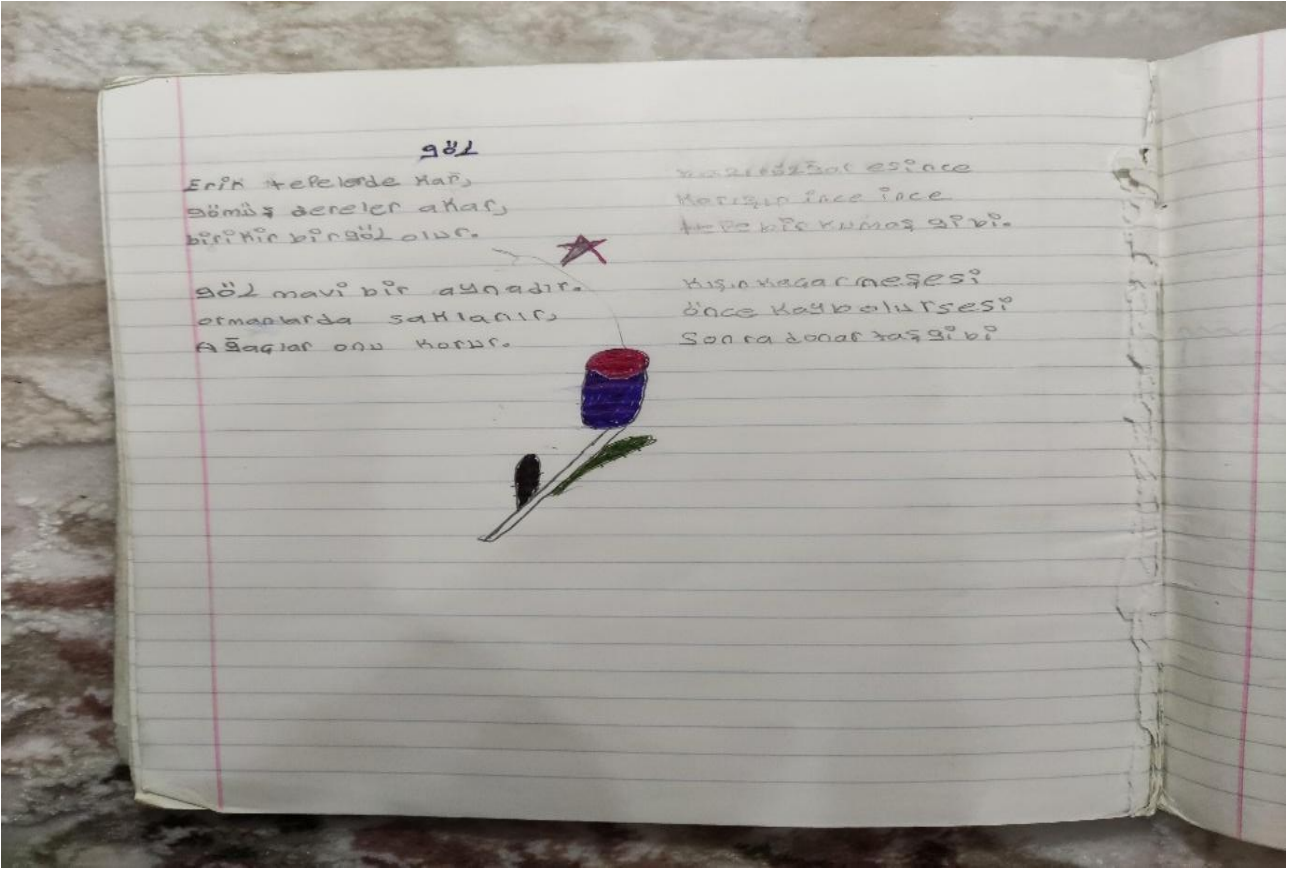 göl
Erik tepelerde kar,
gömüş dereler akar,
birikir bir göl olur.
göl mavi bir aynadır.
ormanlarda saklanır,
Ağaçlar onu korur.
esince
Karışın ince ince
tepe bir kumaş gibi.
Kışın kaçar neşesi
önce kaybolur sesi
Sonra donar taş gibi